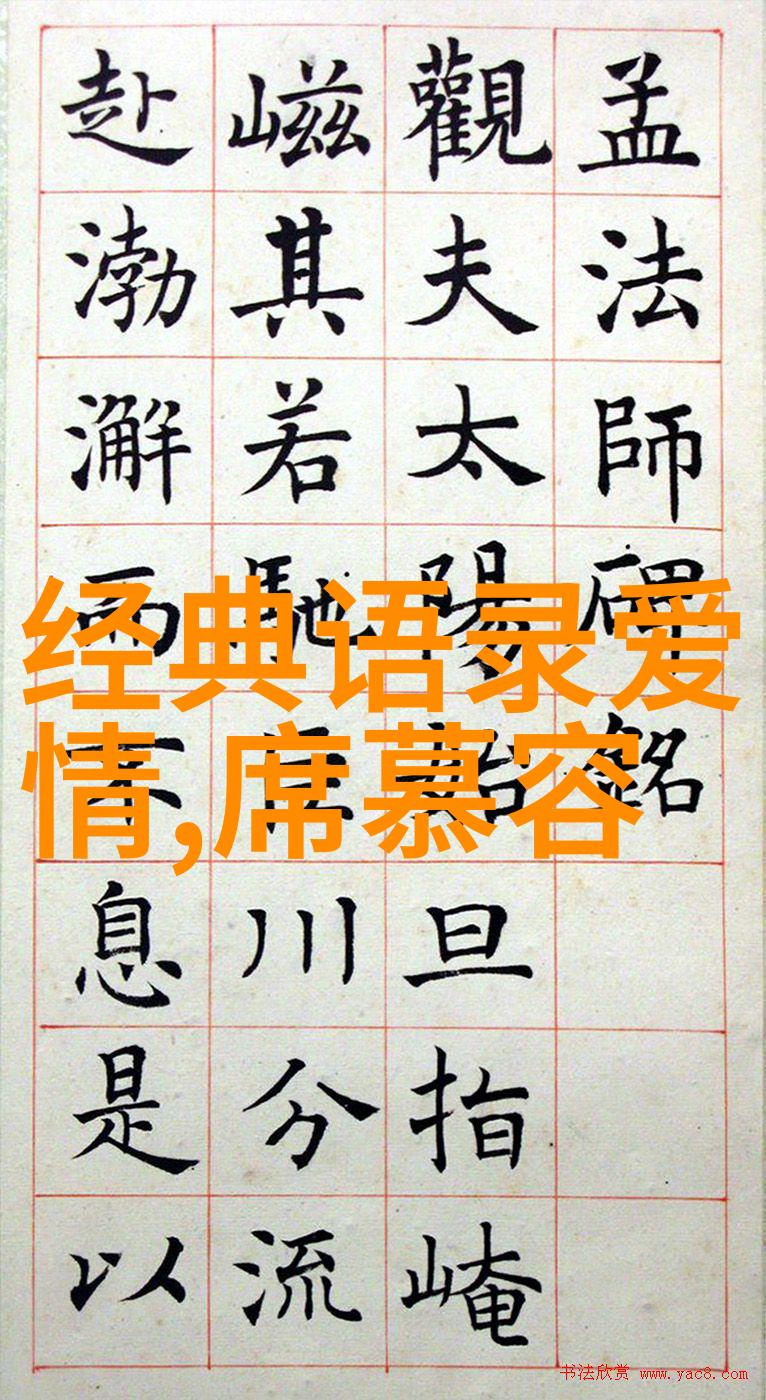 孟法師碑銘
觀夫太陽始旦指崦
嵫其若馳川分流
赴渤澥而不息是以
经典语录爱
情,席慕容
书法欣赏 www.yac8.com